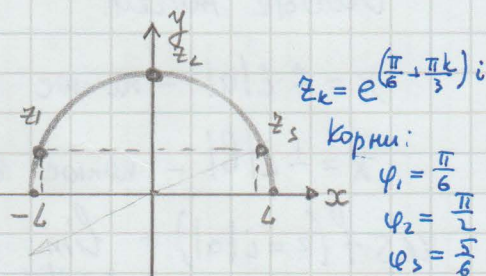 y
z₂
z₁
z₃
-1
1
x
z_k = e^(π/6 + πk/3) i
корни:
φ₁ = π/6
φ₂ = π/2
φ₃ = 5/6